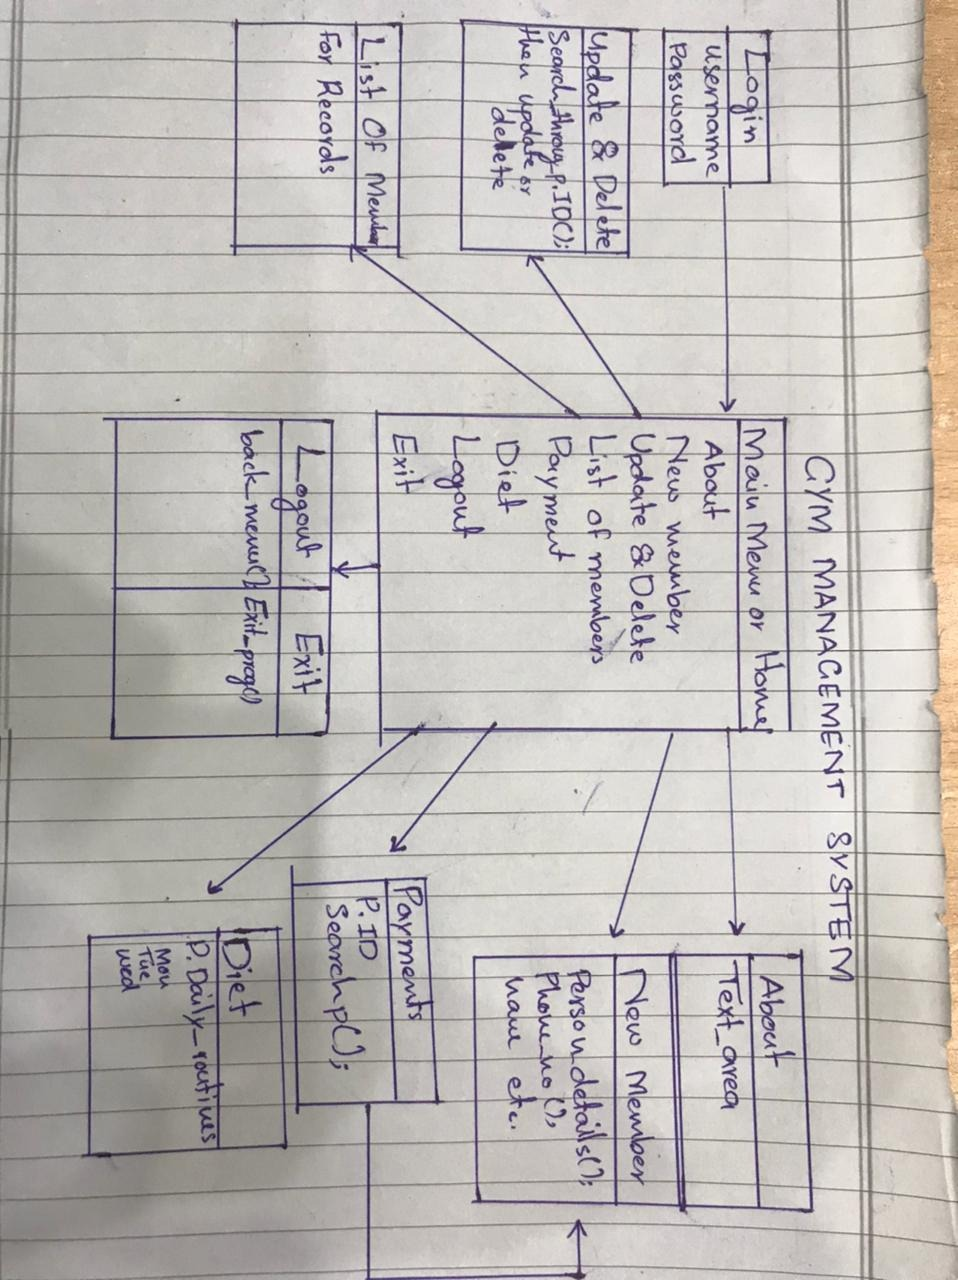 GYM MANAGEMENT SYSTEM
Login
username
Password
Update & Delete
Search_throug_P.ID();
then update or
delete
List Of Member
For Records
Main Menu or Home
About
New member
Update & Delete
List of members
Payment
Diet
Logout
Exit
Logout
back_menu();
Exit
Exit_prog()
About
Text_area
New Member
Person_details();
Phone_no(),
name etc.
Payments
P.ID
Searchp();
Diet
P.Daily_routines
Mon
Tue
Wed